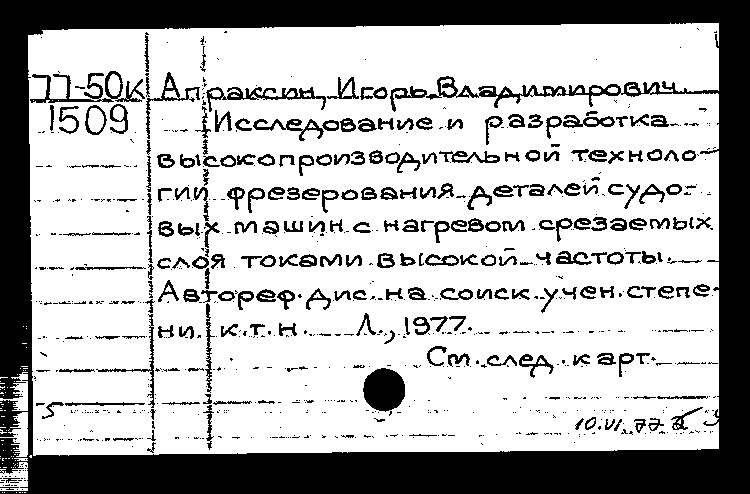 77-50к Апраксин, Игорь Владимирович.
1509 Исследование и разработка
высокопроизводительной техноло-
гии фрезерования деталей судо-
вых машин с нагревом срезаемых
слоя токами высокой частоты.
Автореф. дис. на соиск. учен. степе-
ни к.т.н. Л., 1977.
См. след. карт.
5
10.VI.77